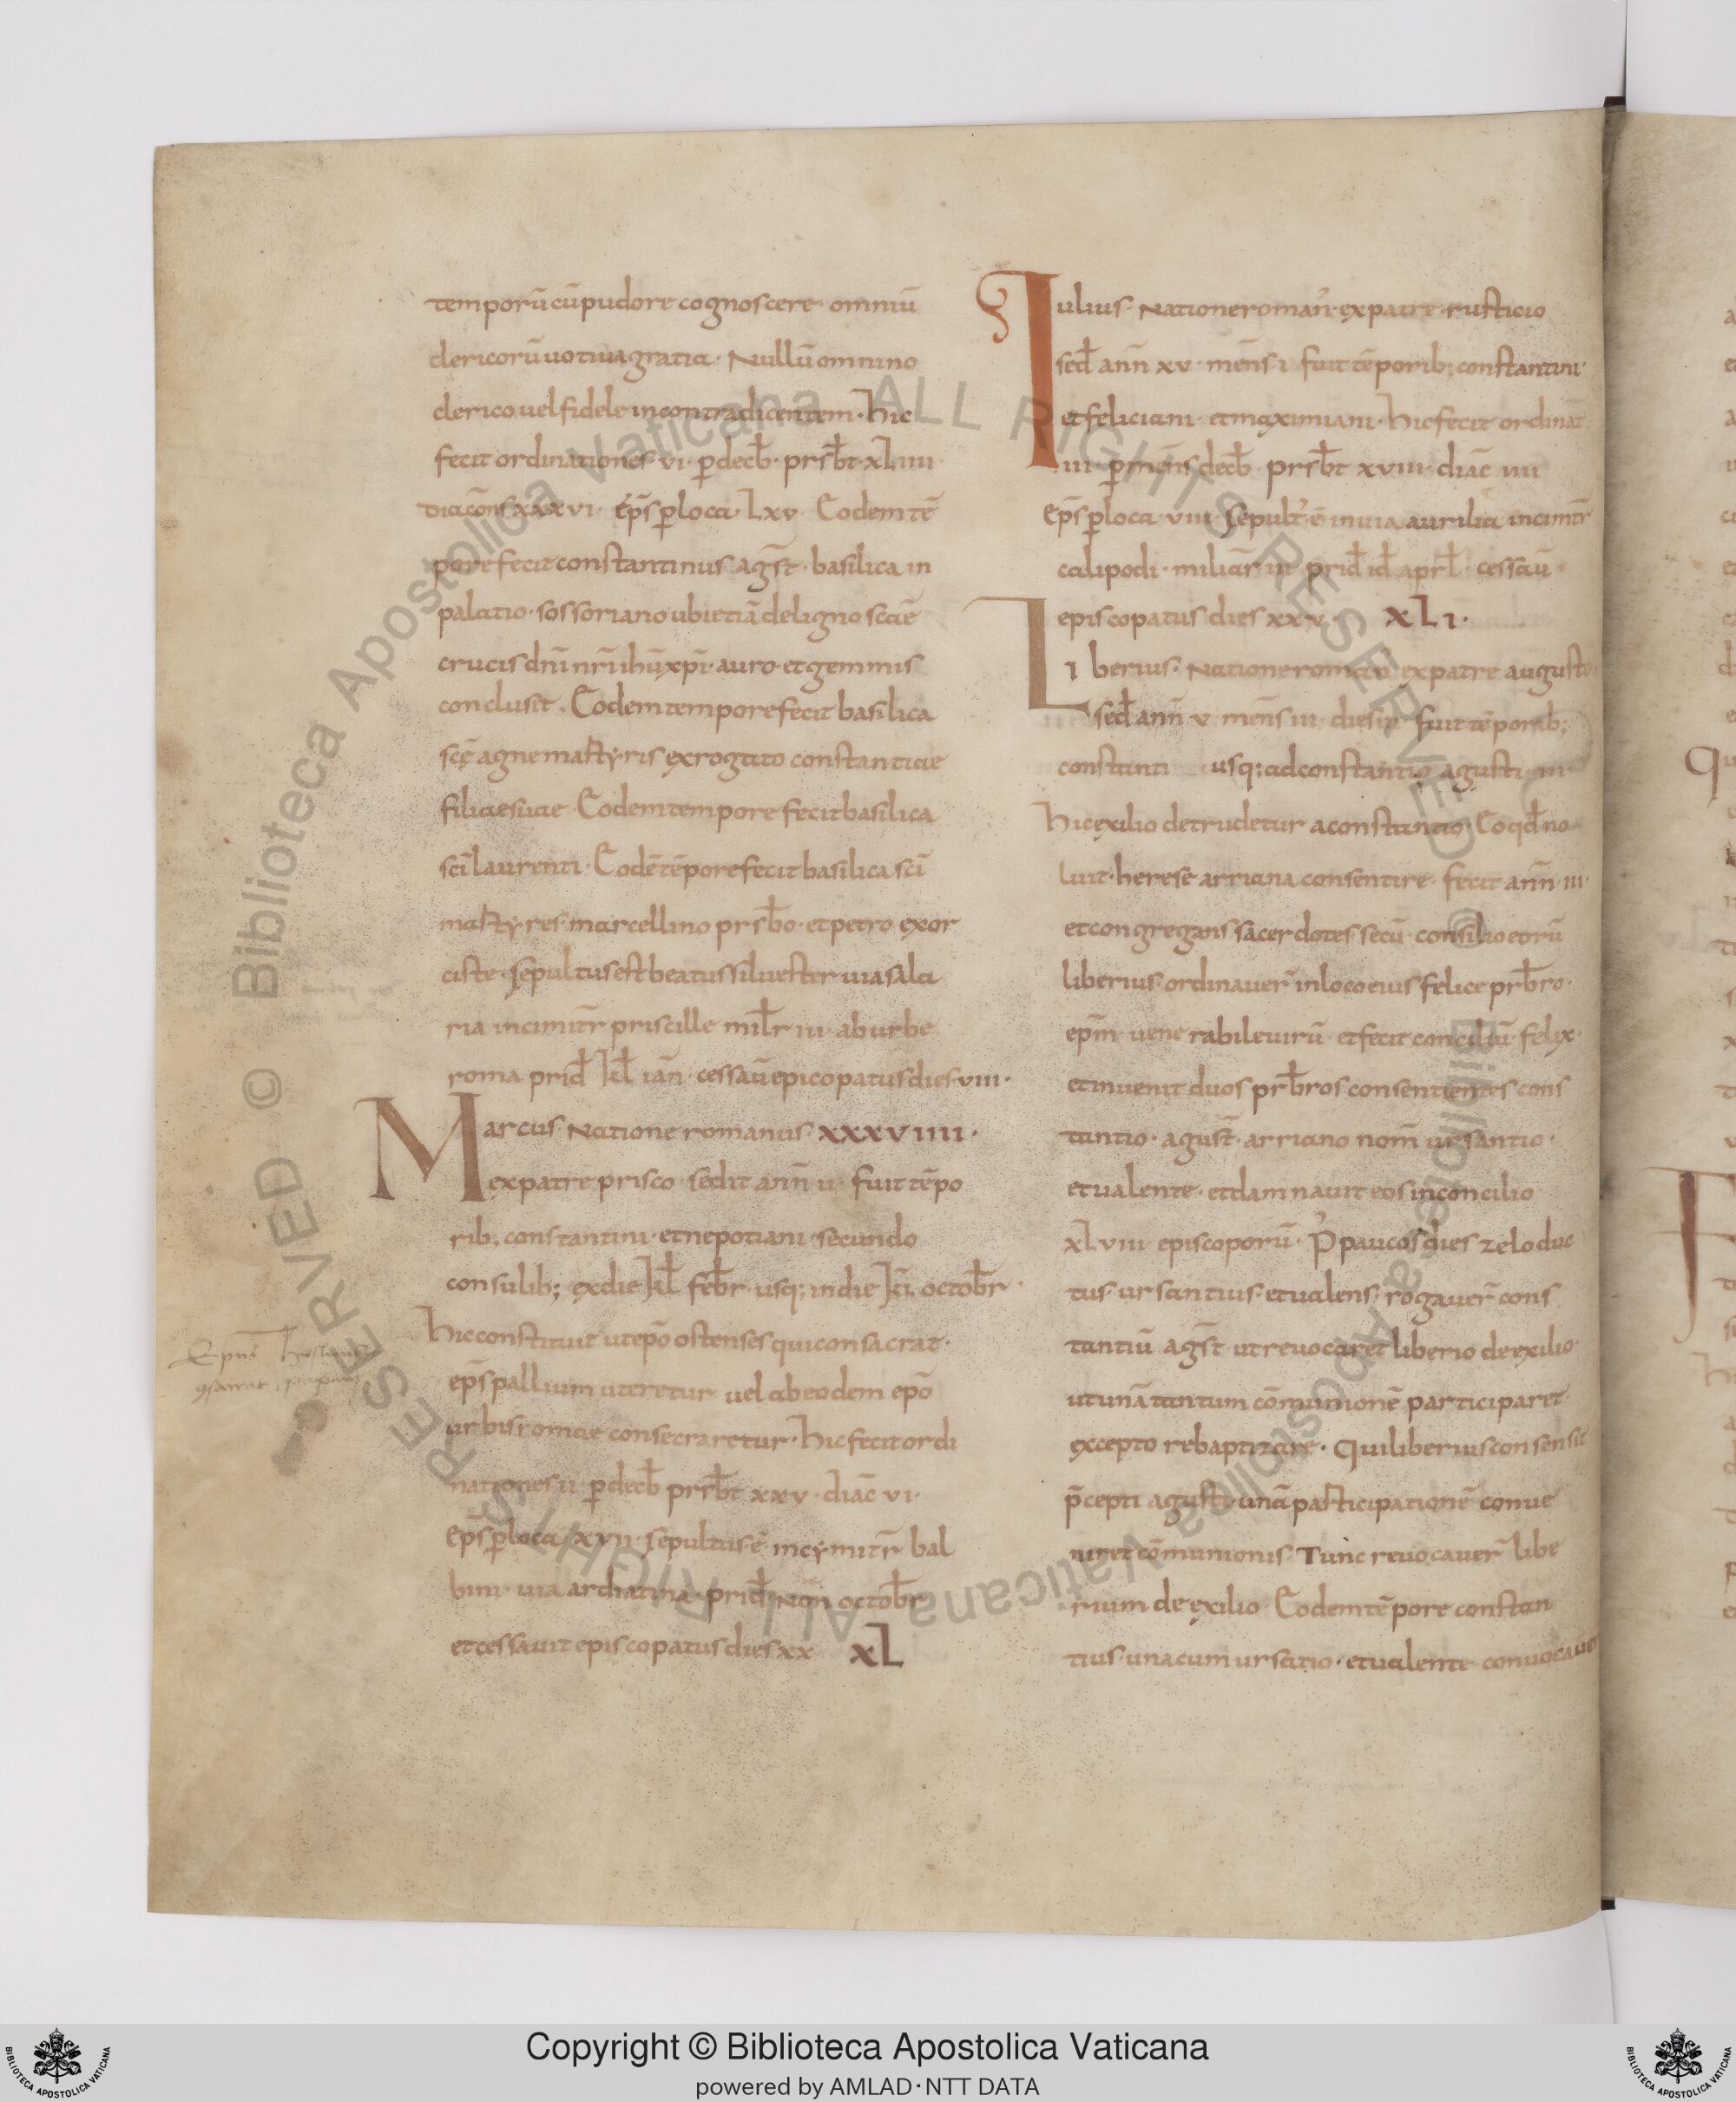 temporū cū pudore cognoscere omniū
clericorū uotiua gratia· Nullū omnino
clerico uel fidele in contradicentem· hic
fecit ordinationes vi· p̄ decb̄· prsb̄t· xLiiii·
diacōns xxxvi· ep̄s p̄ loca· Lxv· Eodem tē
pore fecit constantinus ag̅st· basilica in
palatio· sossoriano ubi etiā de ligno sc̄ae
crucis dn̄i nr̄i ih̄u xp̄i· auro· et gemmis
conclusit· Eodem tempore fecit basilica
sc̄ę agne martyris ex rogato constantiae
filiae suae Eodem tempore fecit basilica
sc̄i laurenti· Eodē tēpore fecit basilica sc̄i
martyres marcellino prsb̄o· et petro exor
ciste· sepultus est beatus siluester uia sala
ria in cimitr̄ priscille mil̄r iii· ab urbe
roma prid̄ kl̄ iān· cessau̅ epicopatus dies viii·
Marcus Natione romanus· xxxviiii·
ex patre prisco· sedit ann̄ ii· fuit tēpo
rib; constantini· et nepotiani· secundo
consulib; ex die kl̄ feb̄r· usq; in die kl̄ octob̄r·
hic constituit ut epō ostenses qui consacrat·
ep̄s pallium uteretur uel ab eodem epō
urbis romae consecraretur· hic fecit ordi
nationes ii p̄ decb̄ prsb̄t xxv· diāc vi·
ep̄s p̄ loca xvii· sepultus ē in cymitr̄ bal
bini· uia ardiatina· prid̄ Non̄ octob̄r
et cessauit episcopatus dies xx xL
Iulius· Natione roman̄· ex patre· rusticio
sed̄ ann̄ xv· mēns i· fuit tēporib; constantini·
et feliciani· et maximiani· hic fecit ordinat̄
iii· p̄ mēns decb̄ prsb̄t xviii· diāc iiii
ep̄s p̄ loca· viii· sepult̾ ē in uia aurilia in cimitr̄
calipodi· miliār iii prid̄ id̄ apr̄l· cessau̅
episcopatus dies xxv· xLi·
Liberius· Natione roman̄ ex patre augusto·
sed̄ ann̄ v· mēns iii dies iv fuit tēporib;
constanti usq; ad constantio agusti iii·
hic exilio detrudetur a constantio· Eo qd̄ no
luit· heresē arriana consentire· fecit ann̄ iii·
et congregans sacerdotes secū· consilio eorū
liberius· ordinauer̄ in loco eius felice prb̄ro·
ep̄m uenerabile uirū· et fecit conciliū felix·
et inuenit duos prb̄ros consentientes cons
tantio· agust̄· arriano nom̄ ursantio·
et ualente· et damnauit eos in concilio
xLviii episcoporū· P̾ paucos dies zelo duc
tus· ursantius· et ualens· rogauer̄ cons
tantiū ag̅st· ut reuocaret liberio de exilio·
ut unā tantum cōmunionē participaret·
excepto rebaptizare· Qui liberius consensit
p̄cepti agusti· unā participationē conue
niret cōmunionis· Tunc reuocauer̄ libe
rium de exilio· Eodem tēpore constan
tius· una cum ursatio· et ualente· conuocauer
Copyright © Biblioteca Apostolica Vaticana
powered by AMLAD·NTT DATA